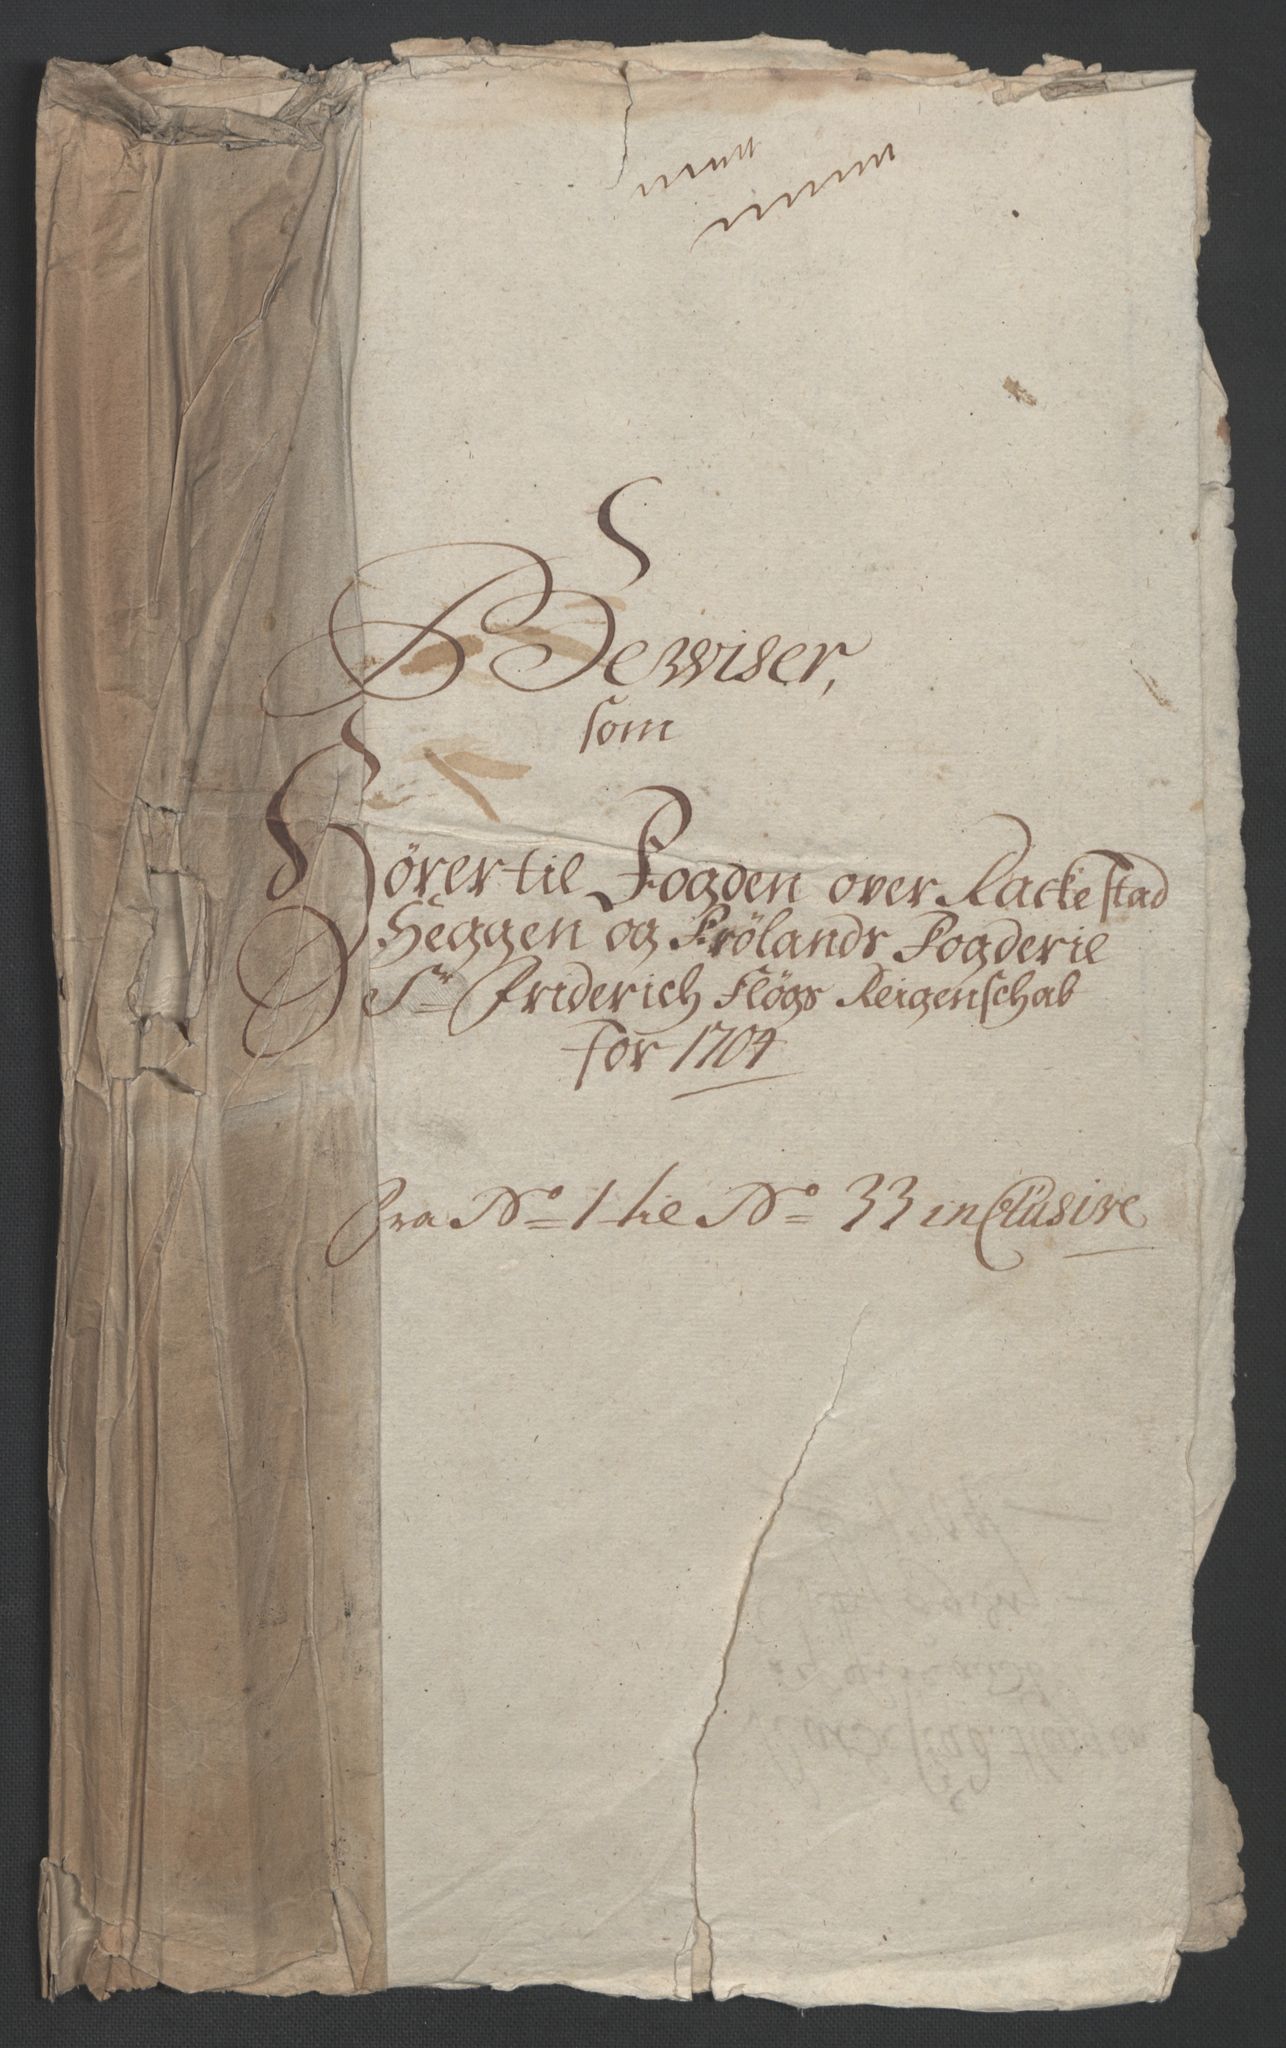 Bewiser,
som
Hörer til Fogden over Rackestad
Heggen og Frölands Fogderie
Sr Friderich Flögs Reigenschab
for 1704
Fra No 1 til No 33 inclusive